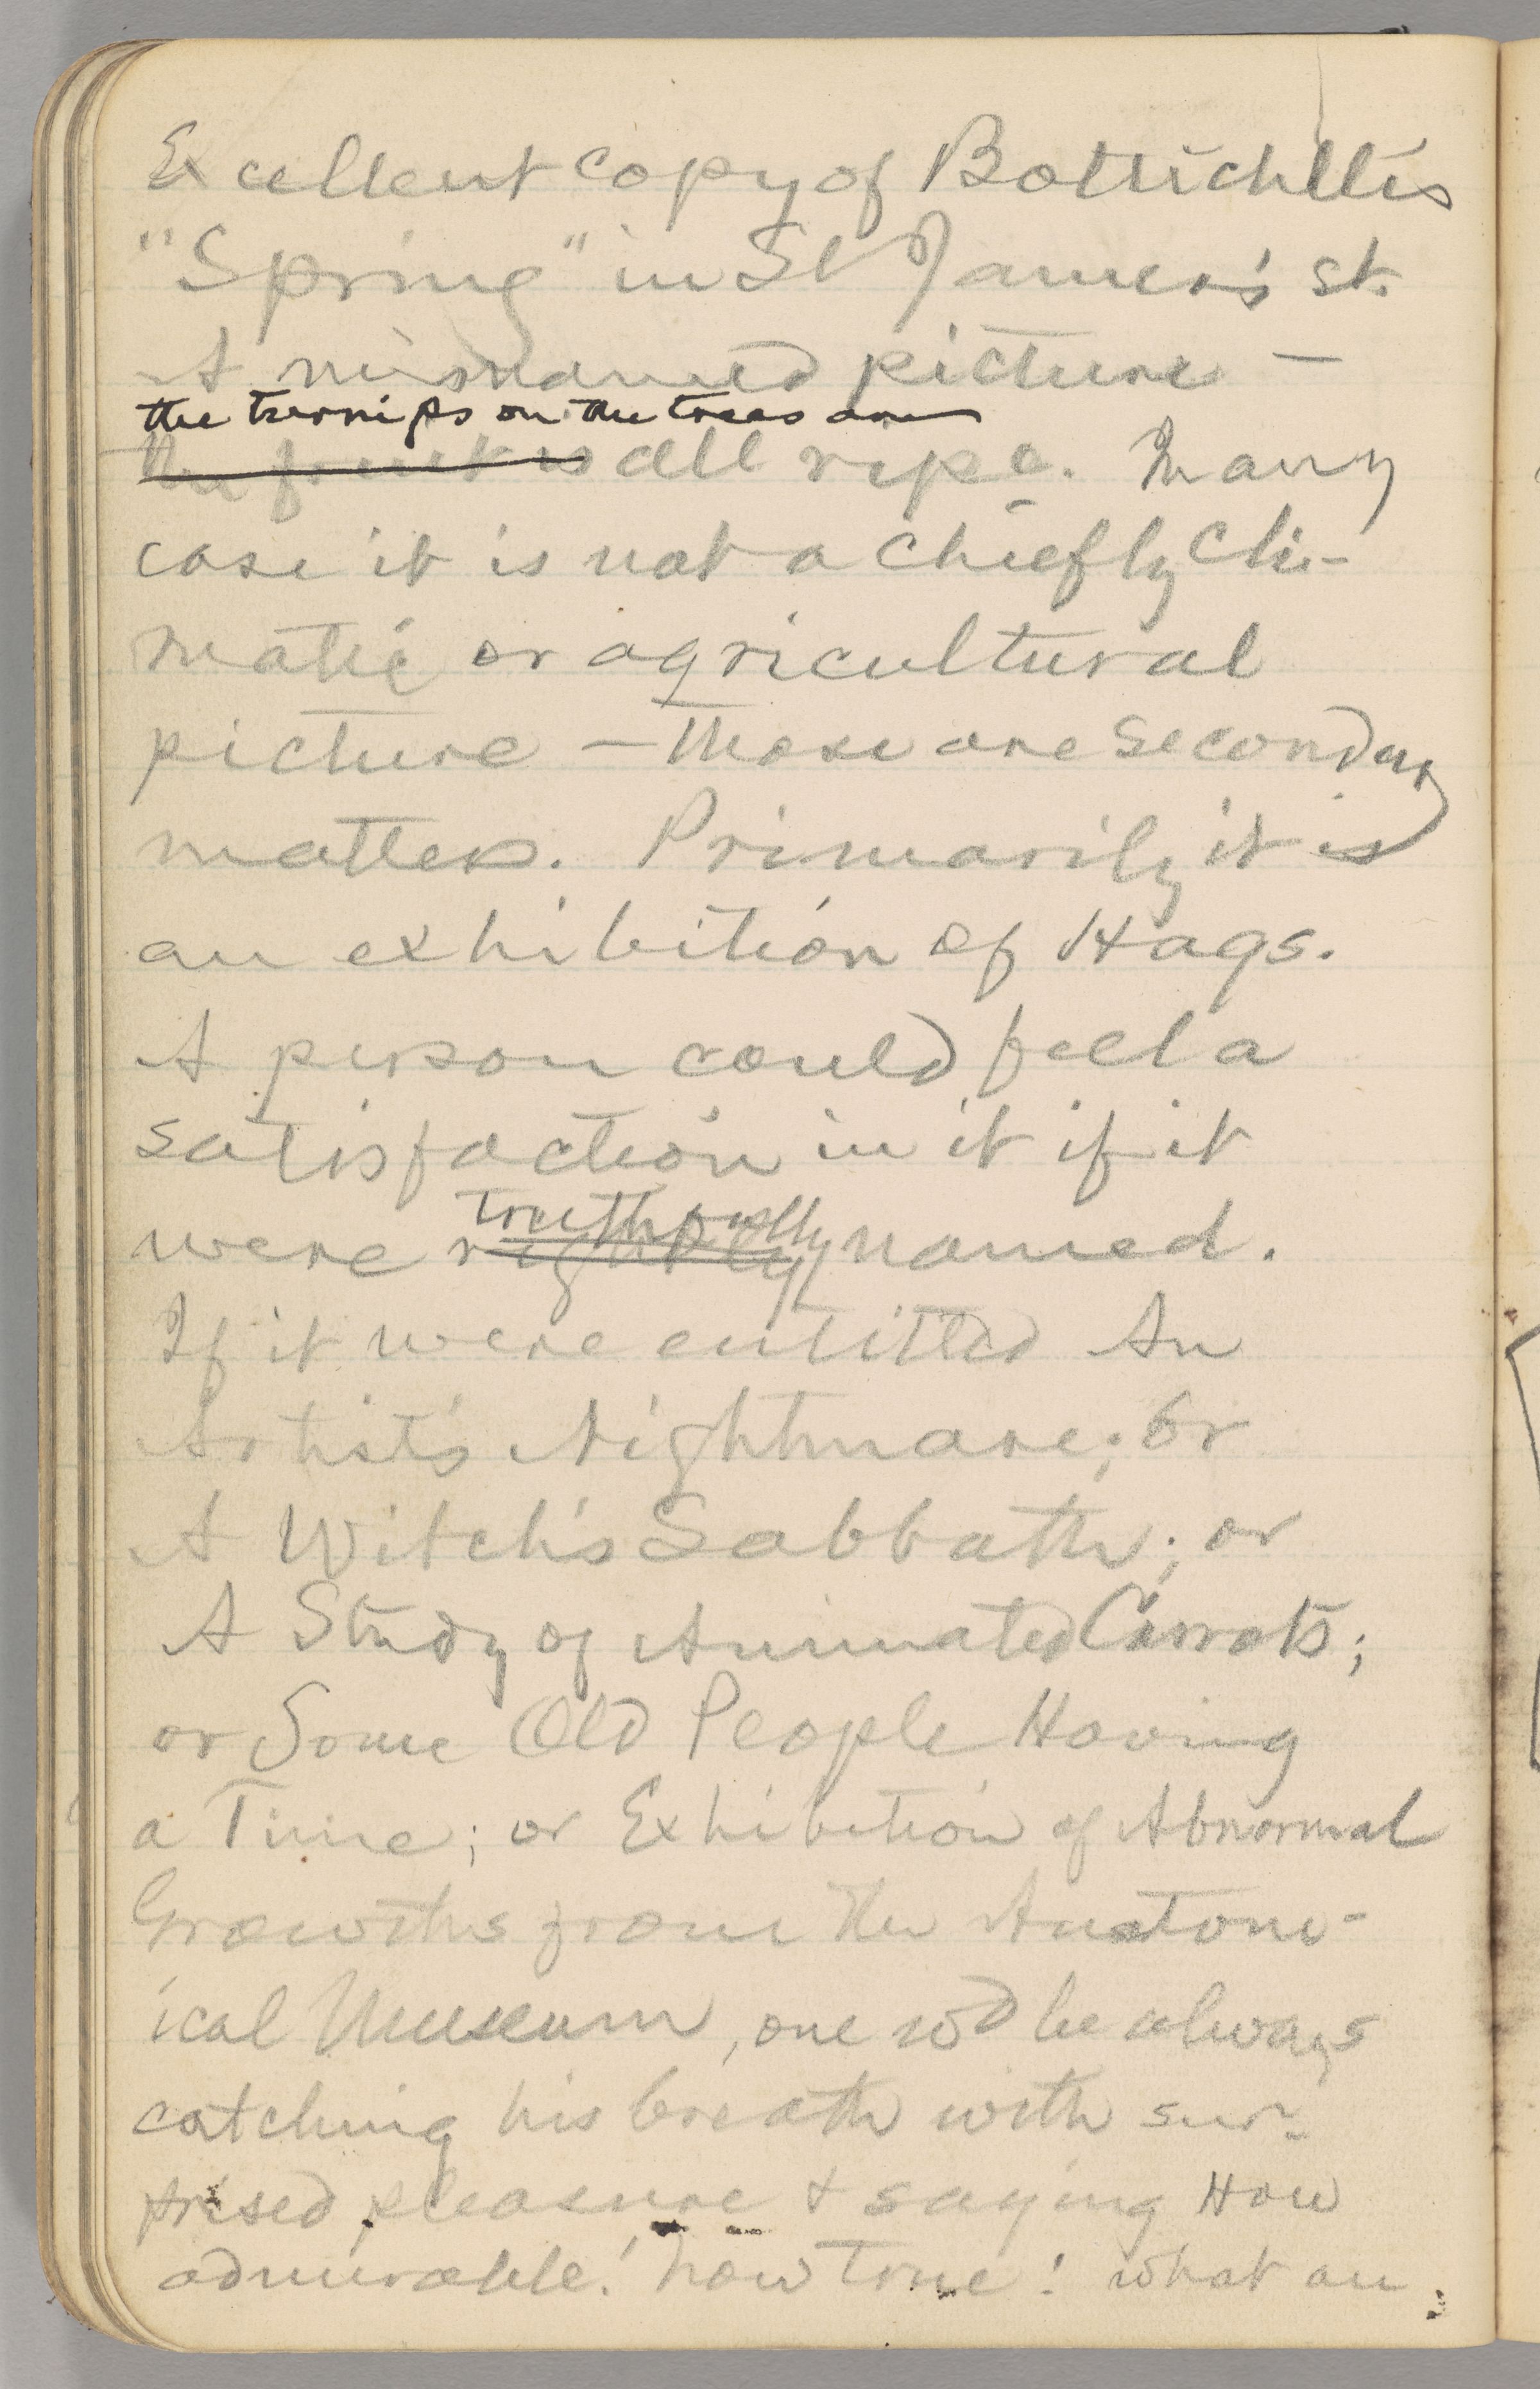 Excellent copy of Bottichlli's
"Spring" in St James's St.
A misnamed picture —
the turnips on the trees are
the fruit is all ripe. In any
case it is not a chiefly cli-
matic or agricultural
picture — those are secondary
matters. Primarily it is
an exhibition of Hags.
A person could feel a
satisfaction in it if it
truthfully
were rightly named.
If it were entitled An
Artist's Nightmare; or
A Witch's Sabbath; or
A Study of Animated Carrots;
or Some Old People Having
a Time; or Exhibition of Abnormal
Growths from the Anatom-
ical Museum, one wd be always
catching his breath with sur-
prised pleasure & saying How
admirable! how true! what an